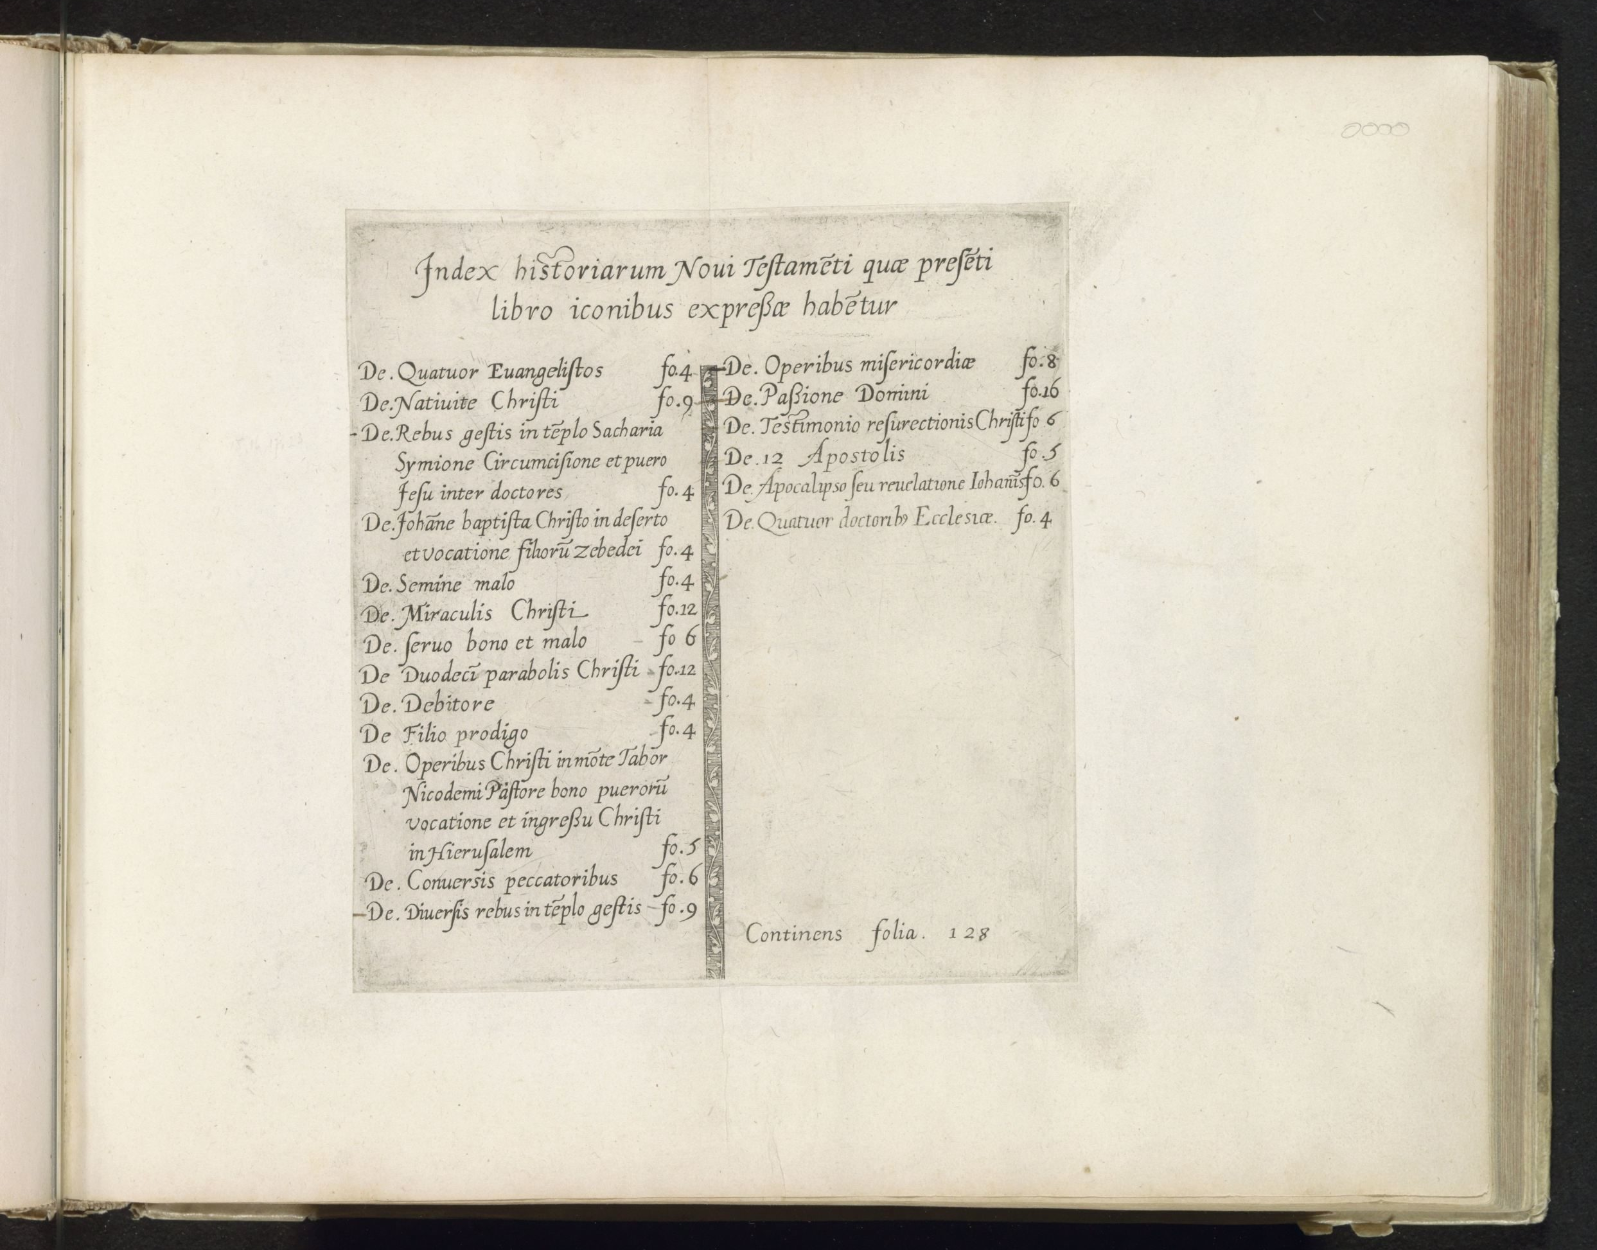 Index historiarum Noui Testamēti quæ presēti
libro iconibus expreßæ habētur
De. Quatuor Euangelistos fo.4
De. Natiuite Christi fo.9
De. Rebus gestis in tēplo Sacharia
Symione Circumcisione et puero
Jesu inter doctores fo.4
De. Johāne baptista Christo in deserto
et vocatione filiorū zebedei fo.4
De. Semine malo fo.4
De. Miraculis Christi fo.12
De. seruo bono et malo fo 6
De Duodecī parabolis Christi fo.12
De. Debitore fo.4
De Filio prodigo fo.4
De. Operibus Christi in mōte Tabor
Nicodemi Pastore bono puerorū
vocatione et ingreßu Christi
in Hierusalem fo.5
De. Conuersis peccatoribus fo.6
De. Diuersis rebus in tēplo gestis fo.9
De. Operibus misericordiæ fo.8
De. Paßione Domini fo.16
De. Testimonio resurectionis Christi fo 6
De. 12 Apostolis fo.5
De. Apocalipso seu reuelatione Iohan̄is fo. 6
De. Quatuor doctorib9 Ecclesiæ. fo.4
Continens folia. 128